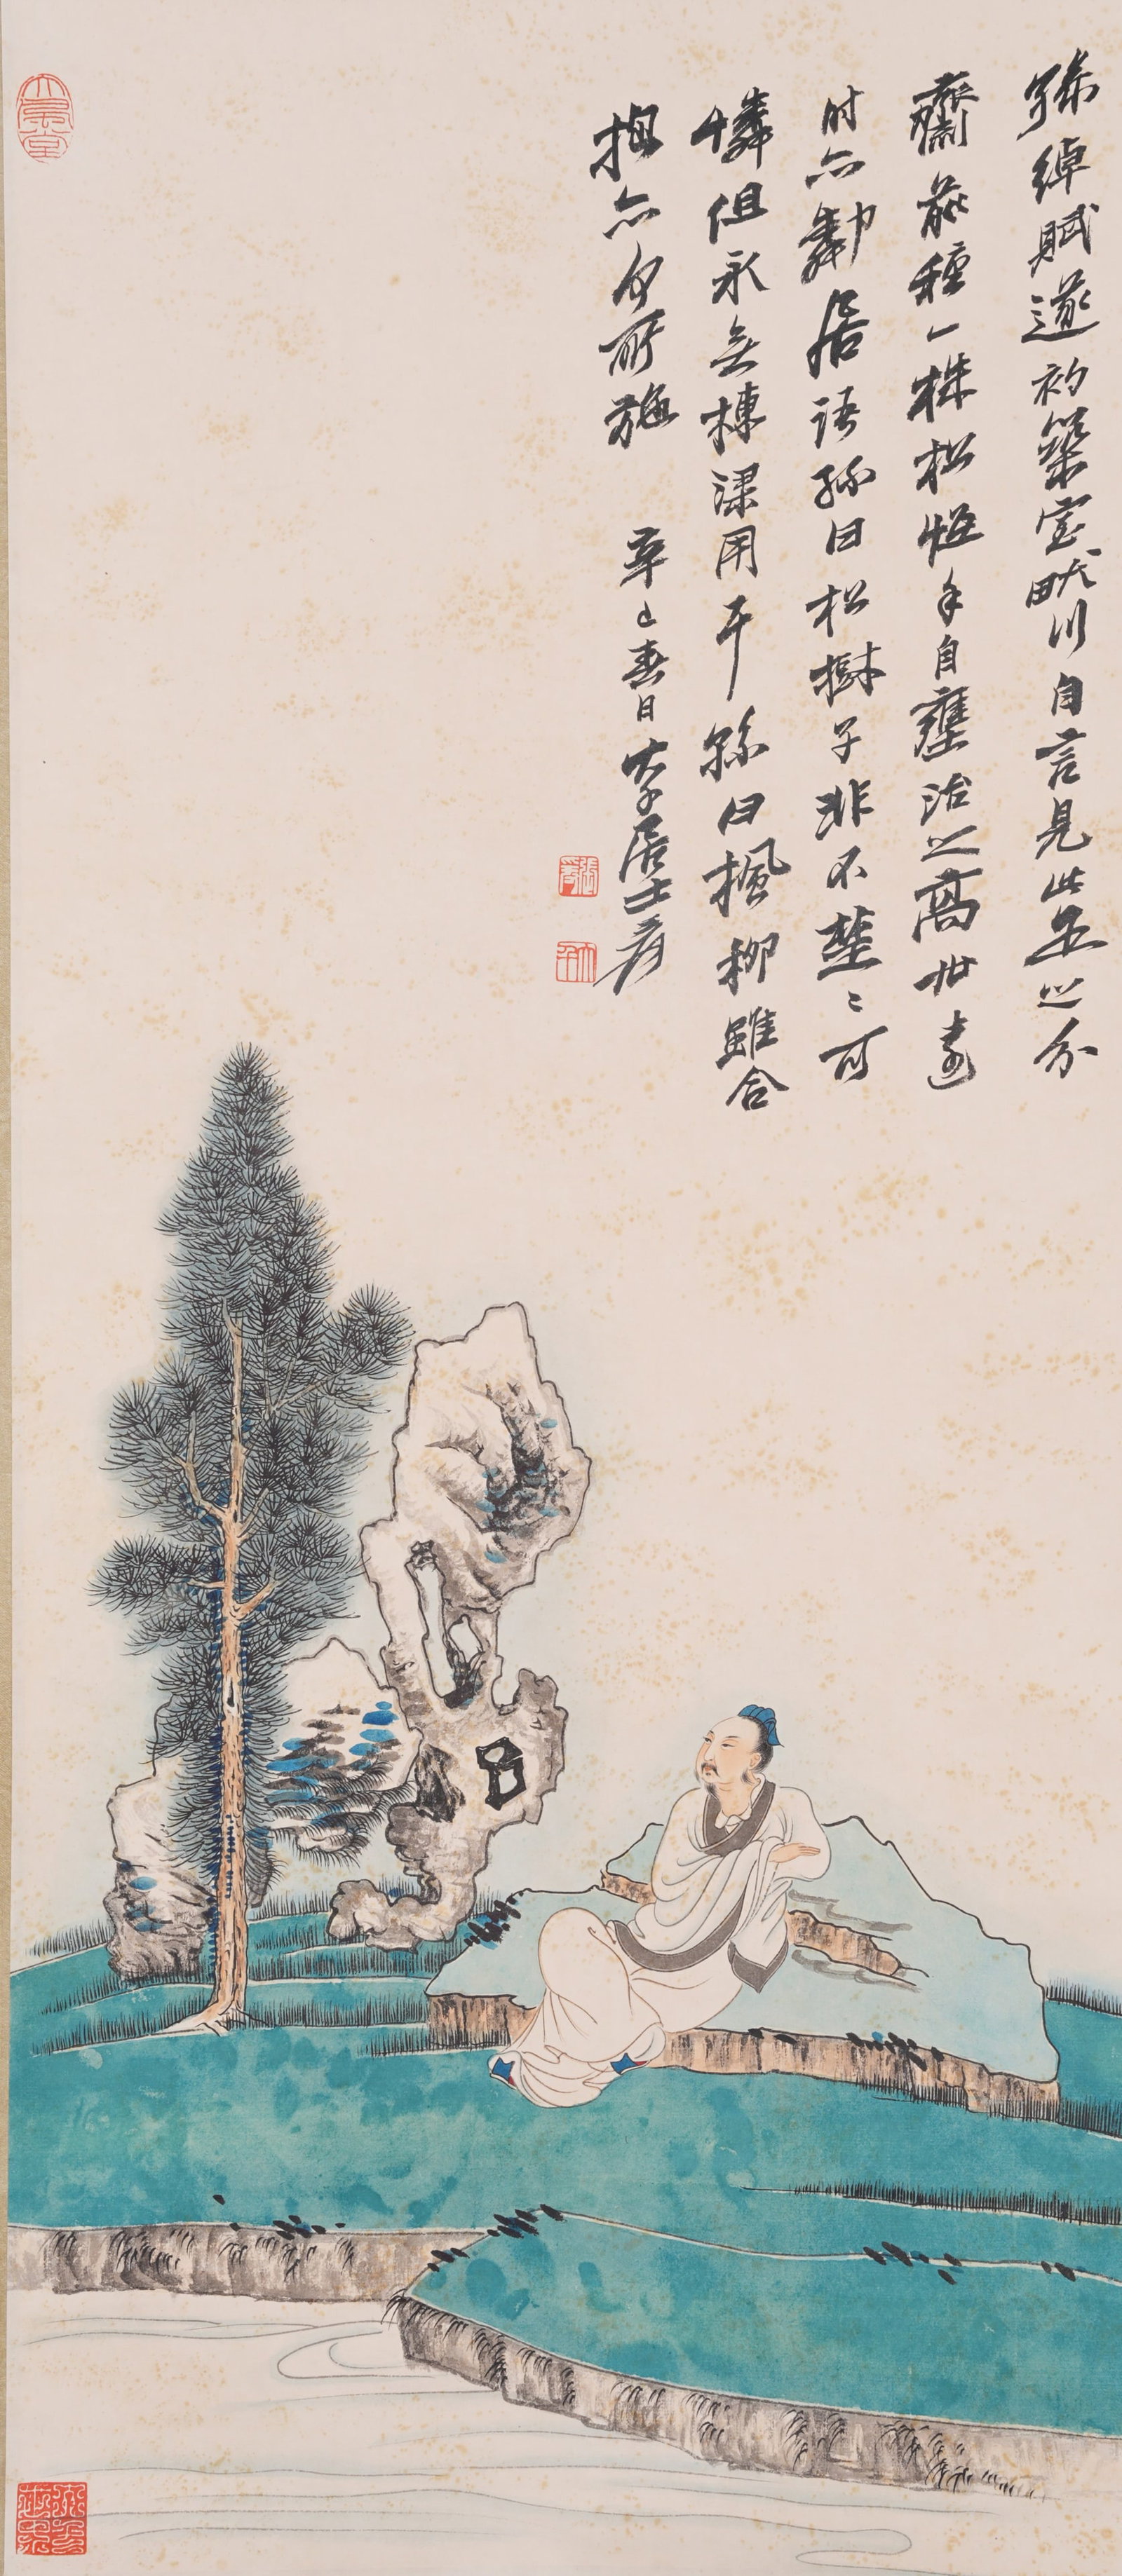 孫綽賦遂初築室畎川自言見此足之分
齋前種一株松恒手自壅治之高世遠
時亦鄰居語孫曰松樹子非不楚〻可
憐但永無棟梁用耳孫曰楓柳雖合
抱亦何所施 辛巳春日大千居士爰
張爰
大千
大風堂